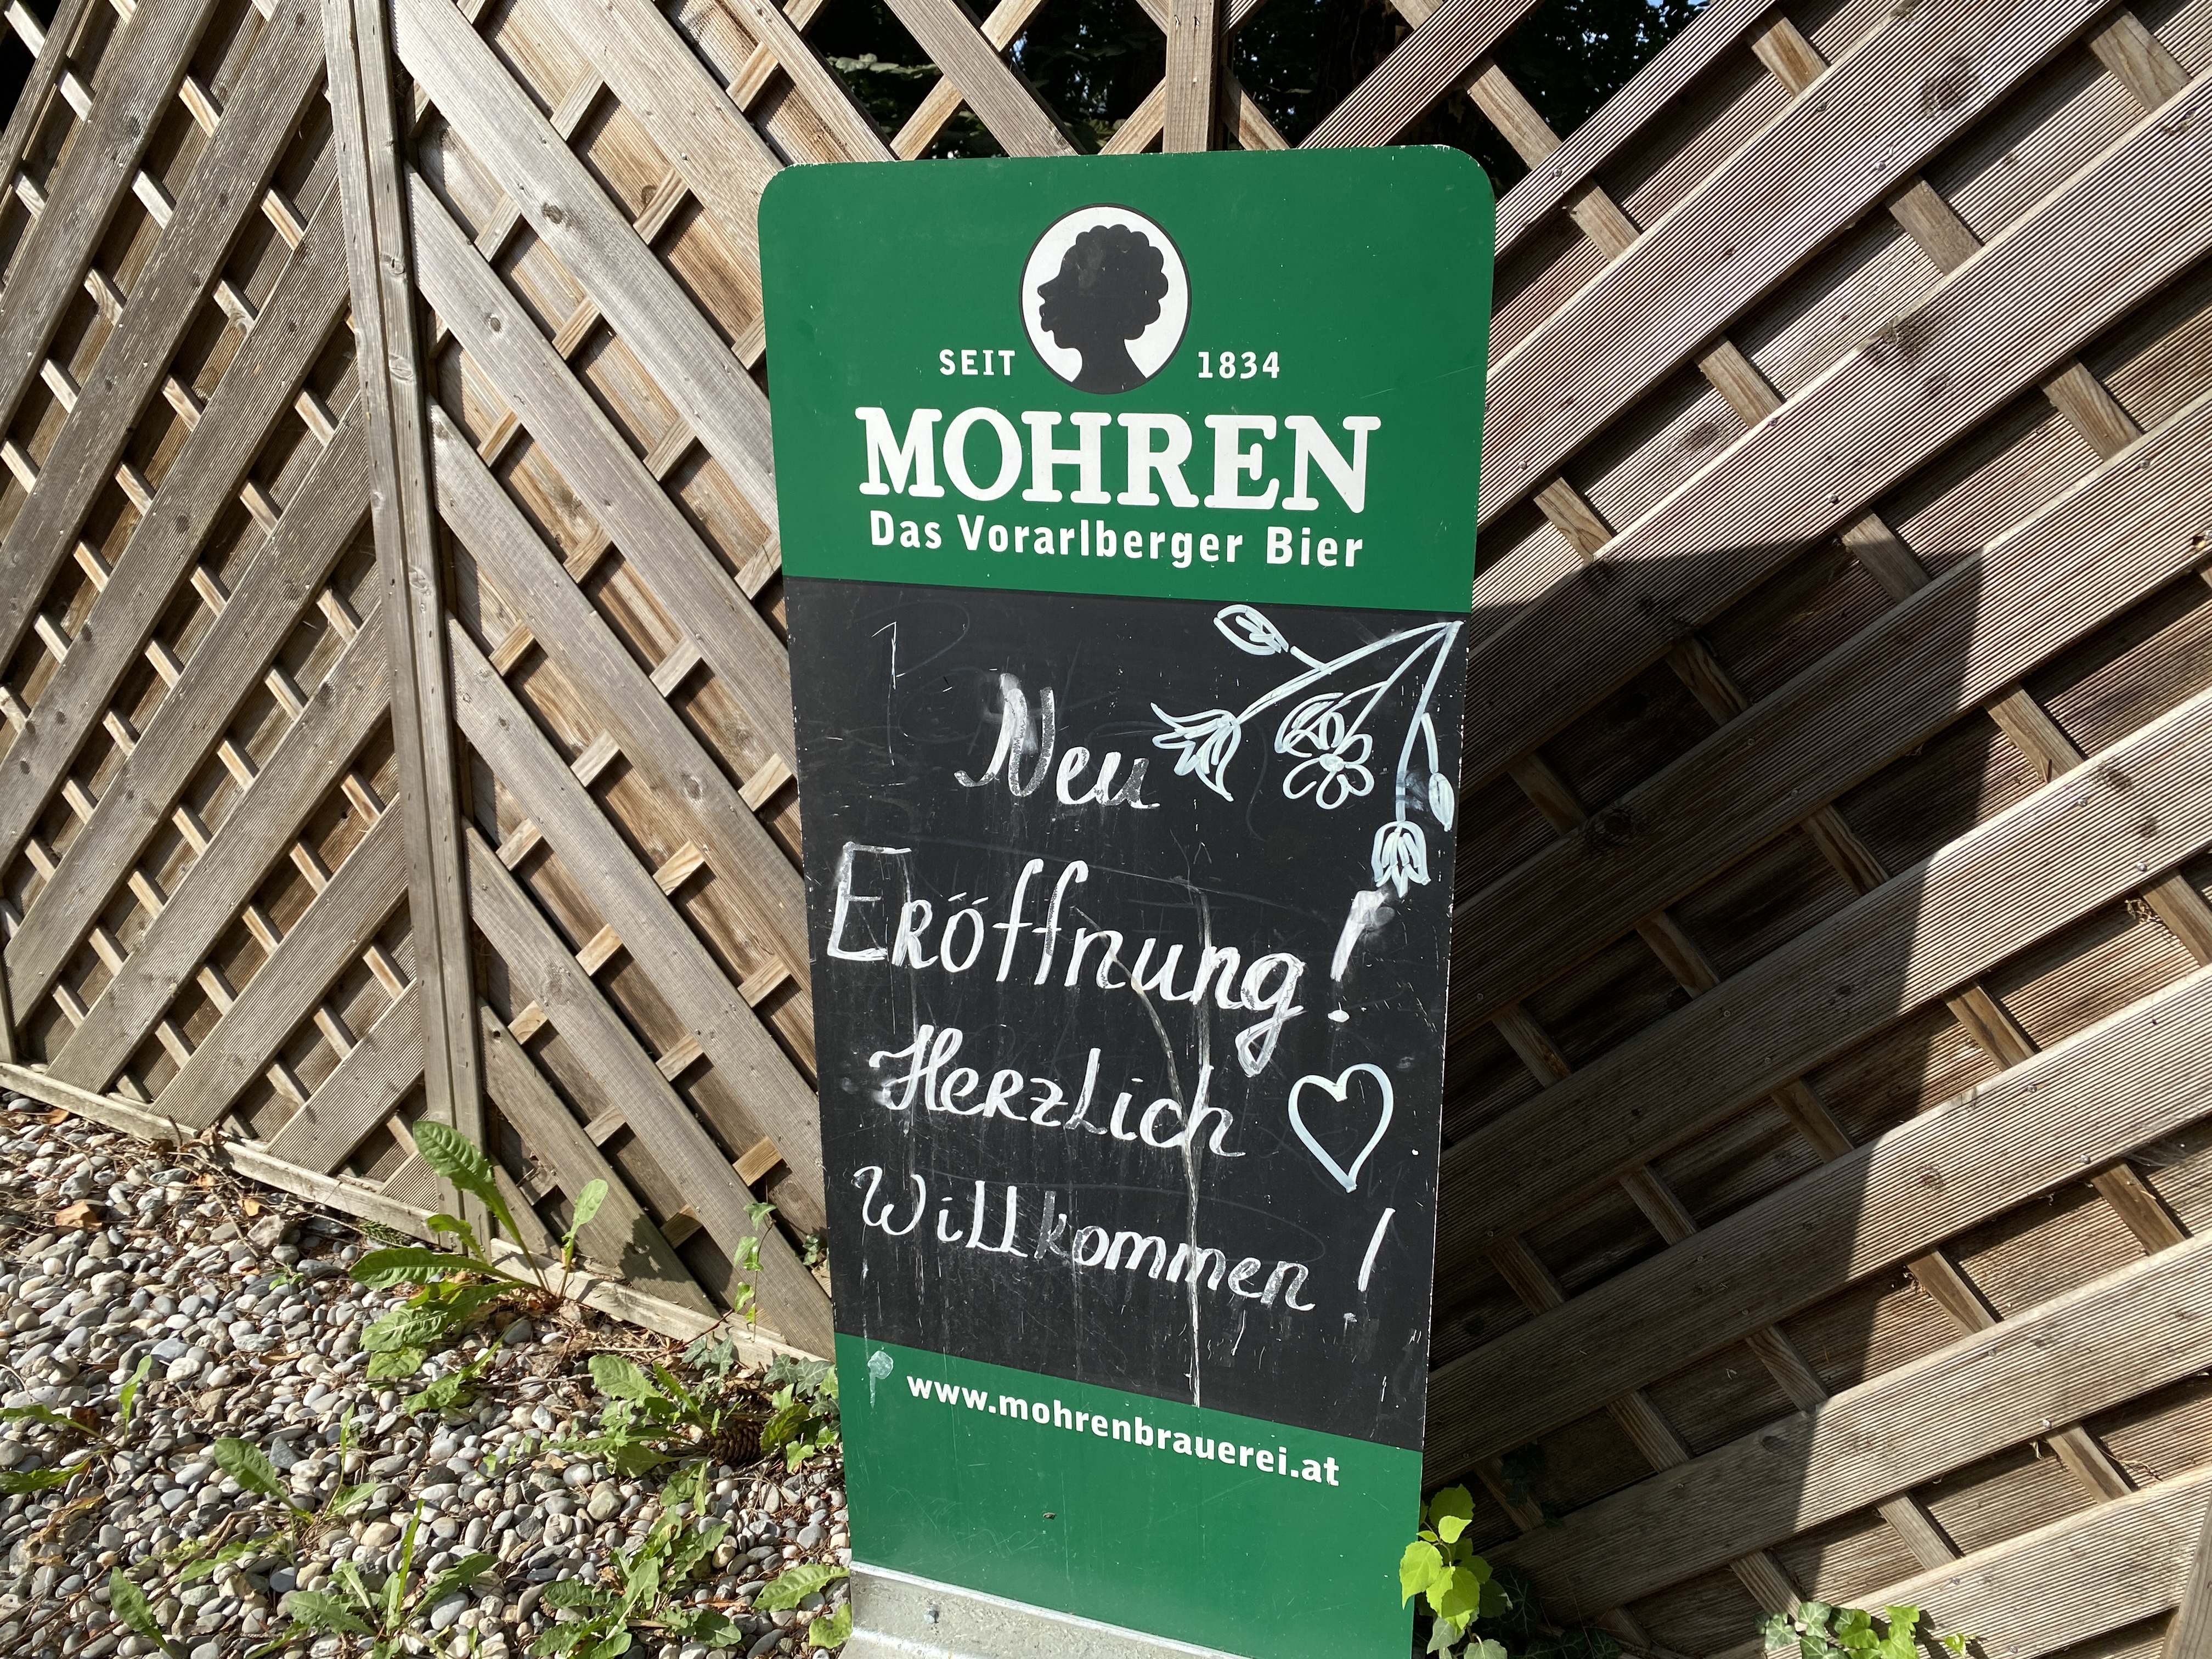 SEIT 1834
MOHREN
Das Vorarlberger Bier
Neu
Eröffnung!
Herzlich
Willkommen!
www.mohrenbrauerei.at